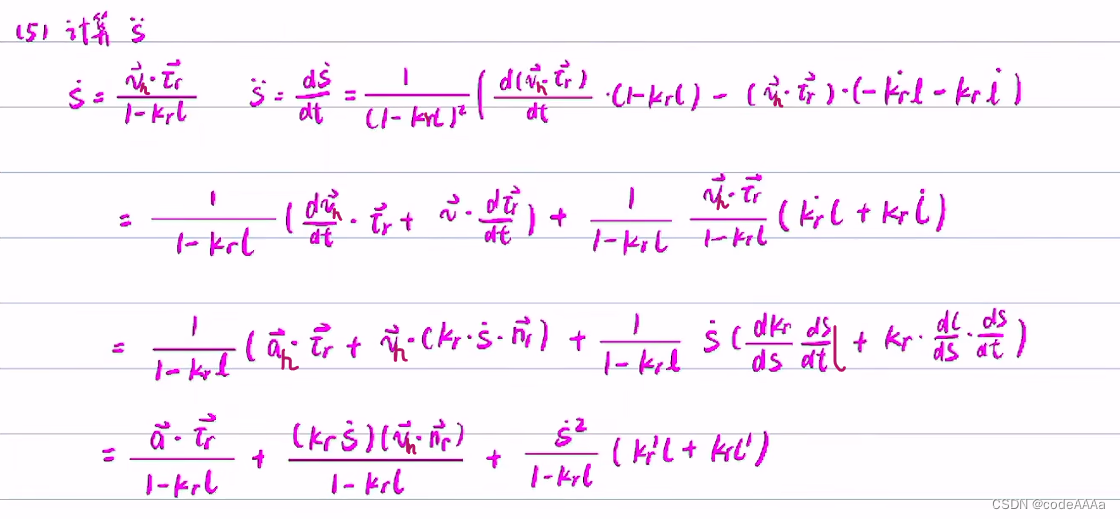 (5) 计算 s̈
ṡ = \frac{\vec{v_h}·\vec{τ_r}}{1-k_r l}   s̈ = \frac{dṡ}{dt} = \frac{1}{(1-k_r l)^2} ( \frac{d(\vec{v_h}·\vec{τ_r})}{dt} ·(1-k_r l) - (\vec{v_h}·\vec{τ_r})·(-\dot{k_r} l - k_r \dot{l} )
= \frac{1}{1-k_r l} ( \frac{d\vec{v_h}}{dt}·\vec{τ_r} + \vec{v}·\frac{d\vec{τ_r}}{dt} ) + \frac{1}{1-k_r l} \frac{\vec{v_h}·\vec{τ_r}}{1-k_r l} ( \dot{k_r} l + k_r \dot{l} )
= \frac{1}{1-k_r l} ( \vec{a_h}·\vec{τ_r} + \vec{v_h}·(k_r·ṡ·\vec{n_r} ) + \frac{1}{1-k_r l} ṡ ( \frac{dk_r}{ds} \frac{ds}{dt} l + k_r·\frac{dl}{ds}·\frac{ds}{dt} )
= \frac{\vec{a}·\vec{τ_r}}{1-k_r l} + \frac{(k_r ṡ)(\vec{v_h}·\vec{n_r})}{1-k_r l} + \frac{ṡ^2}{1-k_r l} ( k_r' l + k_r l' )
CSDN @codeAAAa